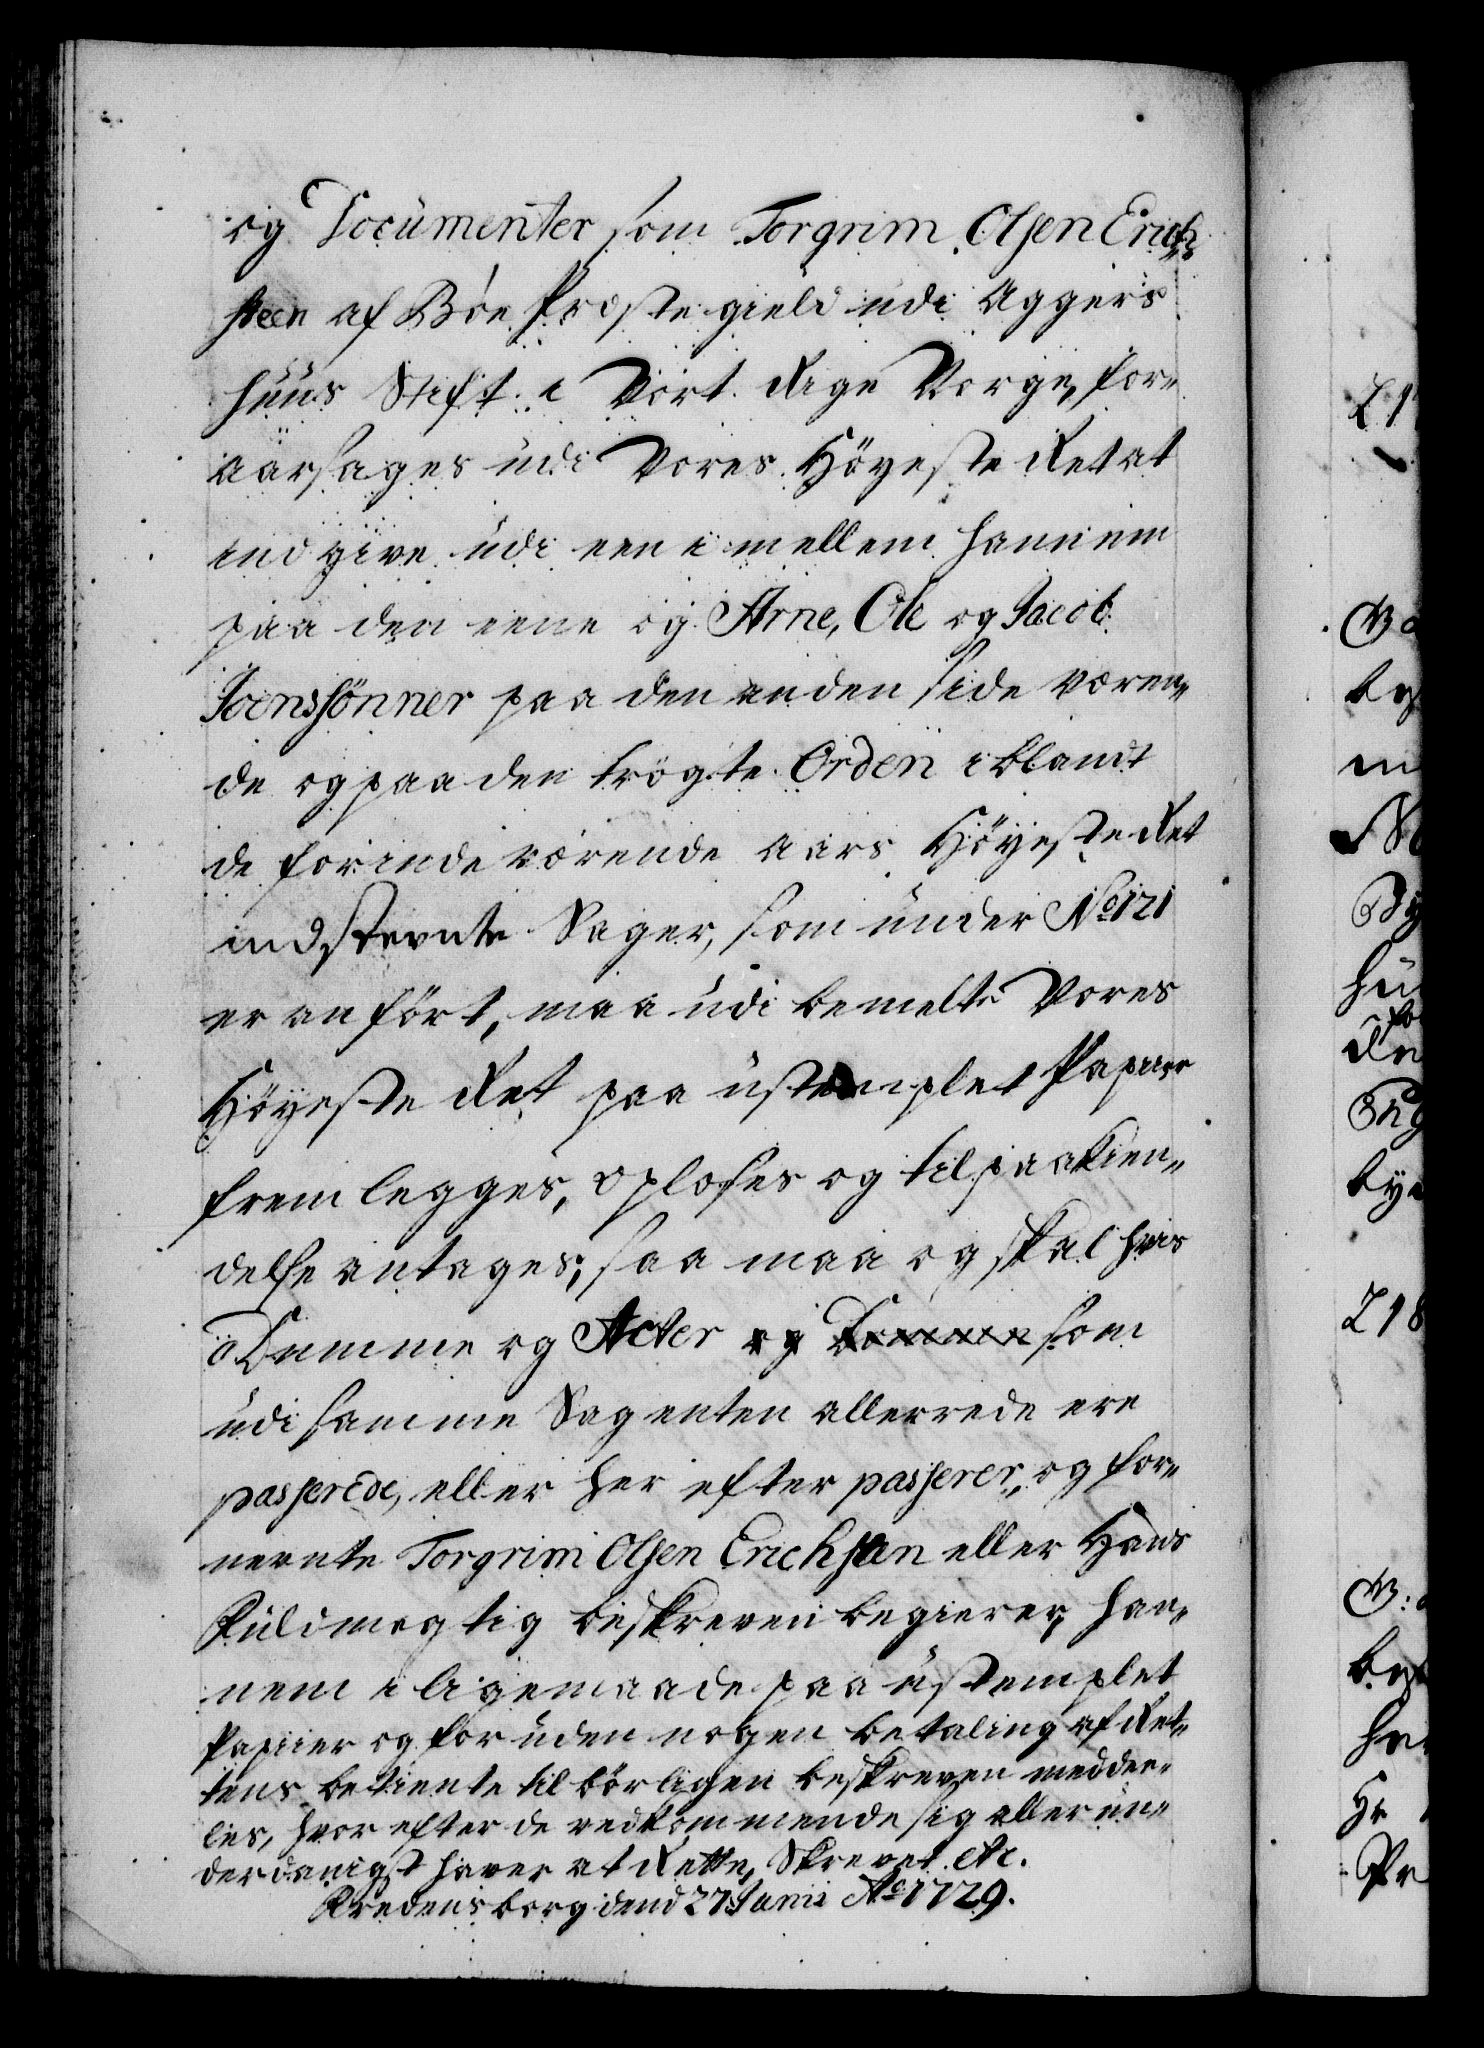 og Documenter som Torgrim Olsen Erich„
steen af Böe Præstegield udi Aggers
huus Stift i Vort Rige Norge, for„
aarsages udi Vores Höyeste Ret at
indgive udi een imellem hannem
paa den eene og Arne, Ole og Jacob
Joenssönner paa den anden side væren„
de og paa den trögte Orden iblandt
de for indeværende aars Höyeste Ret
indstevnte Sager, som under No 121
er anfört, maa udi bemelte Vores
Höyeste Ret paa ustemplet Papiir
fremlegges, oplæses og til paakien„
delse antages; saa maa og skal hvis
Domme og Acter og Domme som
udi samme Sag enten allerrede ere
passerede, eller her efter passerer, og for„
nevnte Torgrim Olsen Erichsen eller Hans
Fuldmegtig beskreven begierer, han„
nem i ligemaade paa ustemplet
Papiir og foruden nogen betaling af Ret„
tens betiente tilbörligen beskreven meddee„
les, hvor efter de vedkommende sig allerun„
derdanigst haver at Rette, Skrevet etc.
Fredensborg dend 27 Junii Ao 1729.
218